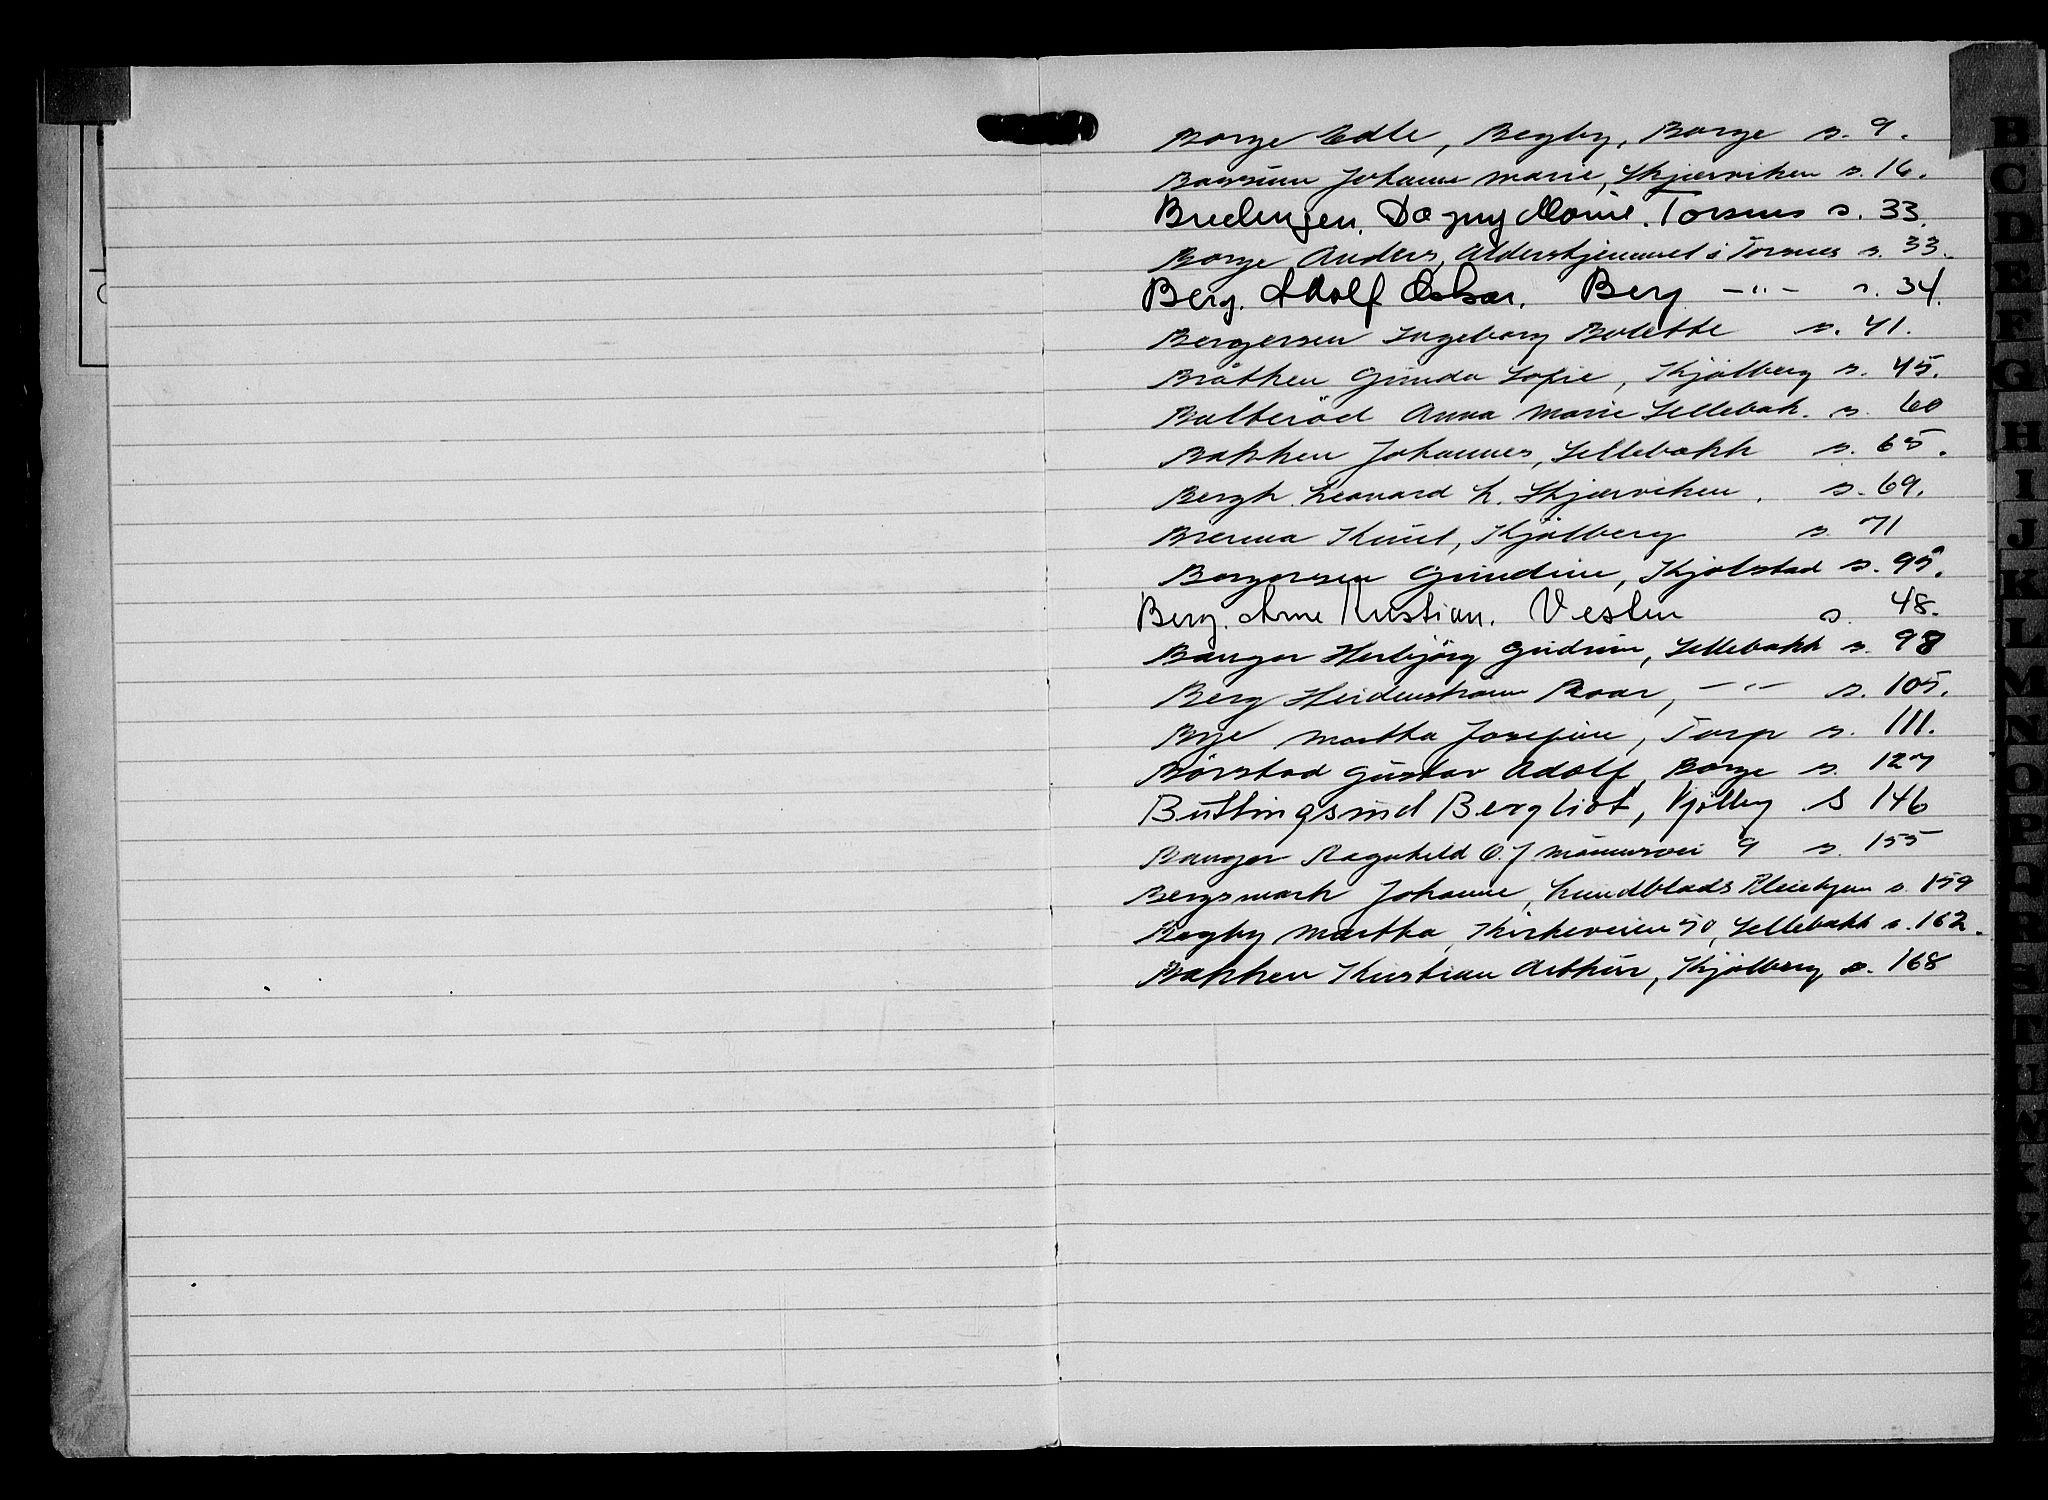 Borge Edle, Begby, Borge s. 9.
Baarsrun Johanne Marie, Skjærviken s. 16.
Dagny Marie. Torsnes s. 33.
Borge Anders, Aldershjemmet i Torsnes s. 33.
Berg. Adolf Oskar. Berg -"- s. 34.
Bergersen Ingeborg Bolette s. 41.
Bråthen Gunda Sofie, Kjølberg s. 45.
Balterød Anna Marie Sellebak. s. 60
Bakken Johannes, Sellebakk s. 65.
Bergh Leonard L. Skjærviken. s. 69.
Brenna Knut, Kjølberg s. 71
Borgersen Gundine, Kjølstad s. 95.
Berg. Arne Kristian. Veslen s. 48.
Bangor Herbjørg Gudrun, Sellebakk s. 98
Berg Heidenstrøm Roar, -"- s. 105.
Bye Martha Josefine, Torp s. 111.
Børstad Gustav Adolf, Borge s. 127
Buttingsrud Bergliot, Kjølberg S 146
Bangor Ragnhild O.J Moumsvei 9 s. 155
Bergsmark Johanne, Lundblads Pleiehjem s. 159
Begby Martha, Kirkeveien 50, Sellebakk s. 162.
Bakken Kristian Arthur, Kjølberg s. 168
B
C
D
E
F
G
H
I
J
K
L
M
N
O
P
R
S
T
U